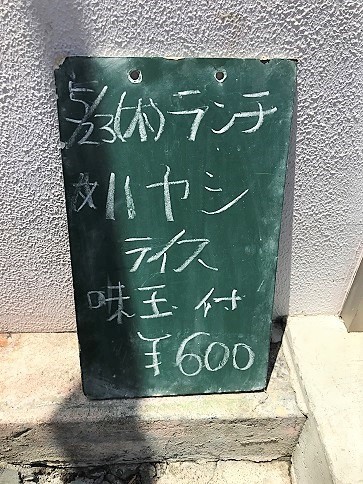 5/23(木)ランチ
ハヤシ
ライス
味玉付
¥600